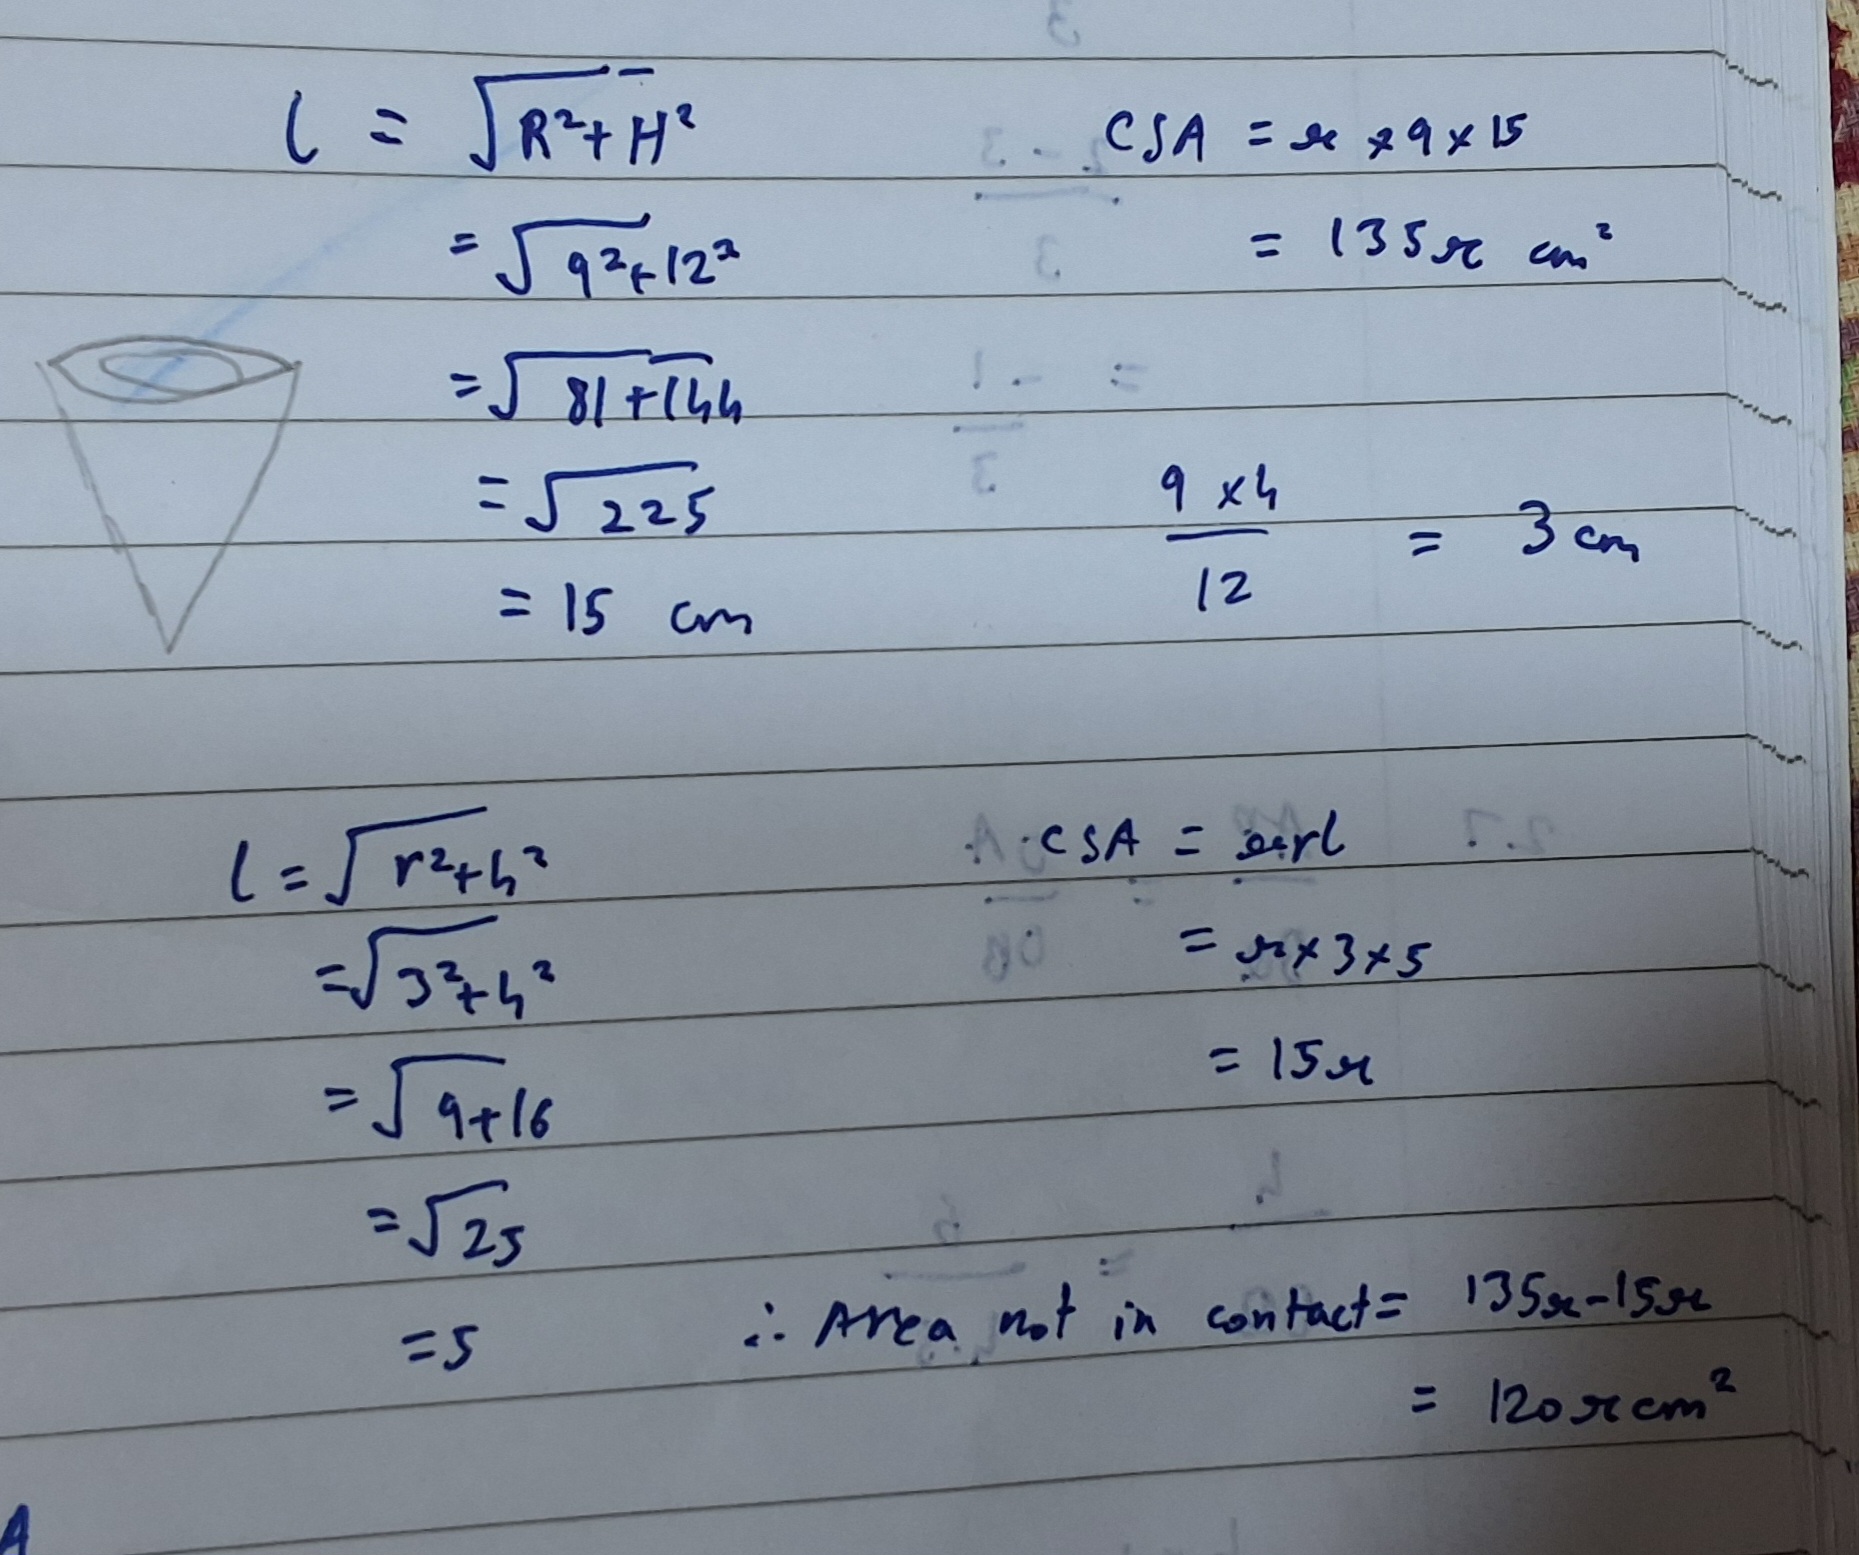 l = √R²+H²
= √9²+12²
= √81+144
= √225
= 15 cm
CSA = π × 9 × 15
= 135π cm²
9 × 4
12
= 3 cm
l = √r²+h²
= √3²+4²
= √9+16
= √25
= 5
CSA = πrl
= π × 3 × 5
= 15π
∴ Area not in contact = 135π - 15π
= 120π cm²
A